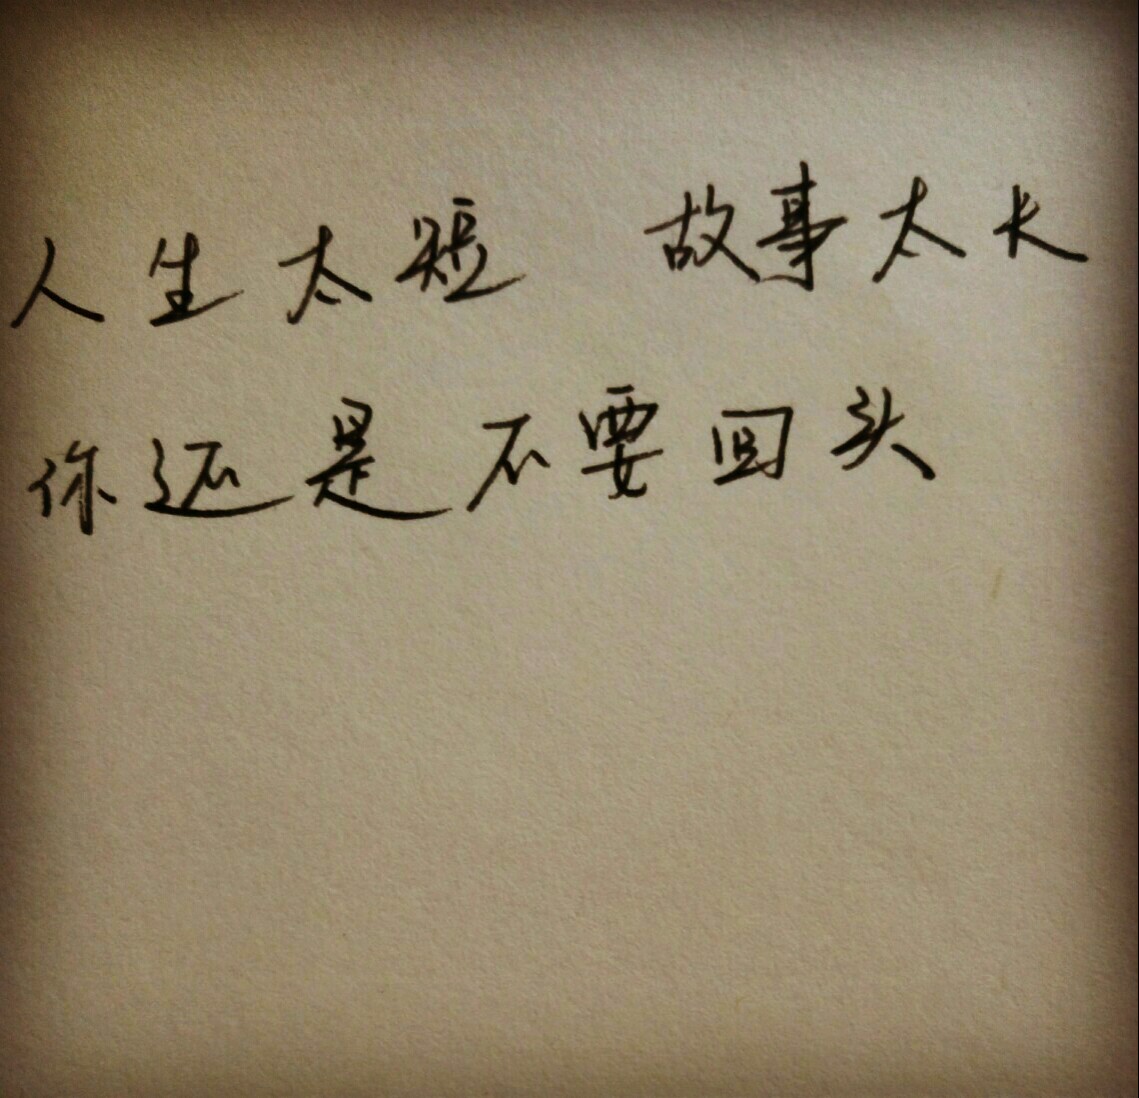 人生太短 故事太长
你还是不要回头